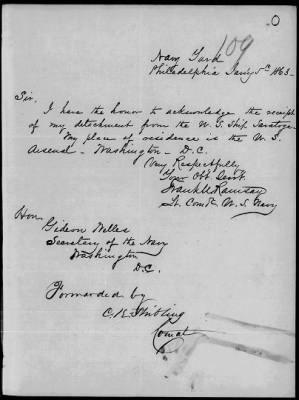 O
109
Navy Yard
Philadelphia Jan'y 5th 1863
Sir,
I have the honor to acknowledge the receipt
of my detachment from the U.S. Ship Saratoga.
My place of residence is the U.S.
Arsenal - Washington - D.C.
Very Respectfully
Your Obt. Servt.
Frank M Ramsay
Lt. Comdr. U.S. Navy
Hon.
Gideon Welles
Secretary of the Navy
Washington
D.C.
Forwarded by
C.K. Stribling
Comdt